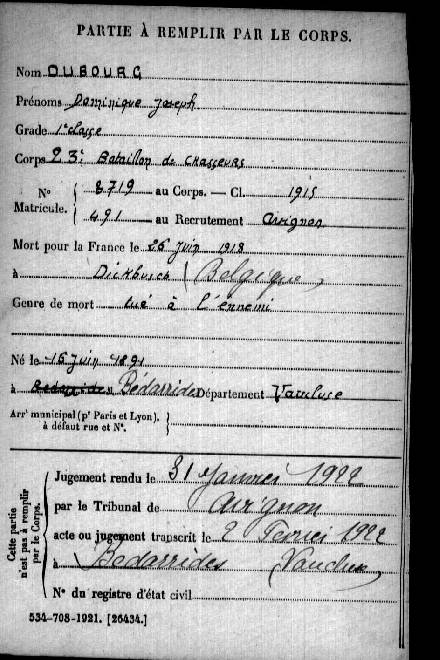 PARTIE À REMPLIR PAR LE CORPS.
Nom DUBOURG
Prénoms Dominique Joseph
Grade 1e classe
Corps 23e Bataillon de Chasseurs
N° Matricule. { 8719 au Corps. — Cl. 1915
491 au Recrutement Avignon
Mort pour la France le 26 Juin 1918
à Dickbusch (Belgique)
Genre de mort tué à l'ennemi
Né le 15 Juin 1891
à Bédarrides Département Vaucluse
Arr<sup>t</sup> municipal (p<sup>r</sup> Paris et Lyon), à défaut rue et N°. }
Cette partie n'est pas à remplir par le Corps.
Jugement rendu le 31 Janvier 1922
par le Tribunal de Avignon
acte ou jugement transcrit le 2 Fevrier 1922
à Bédarrides Vaucluse
N° du registre d'état civil
534-708-1921. [26434.]